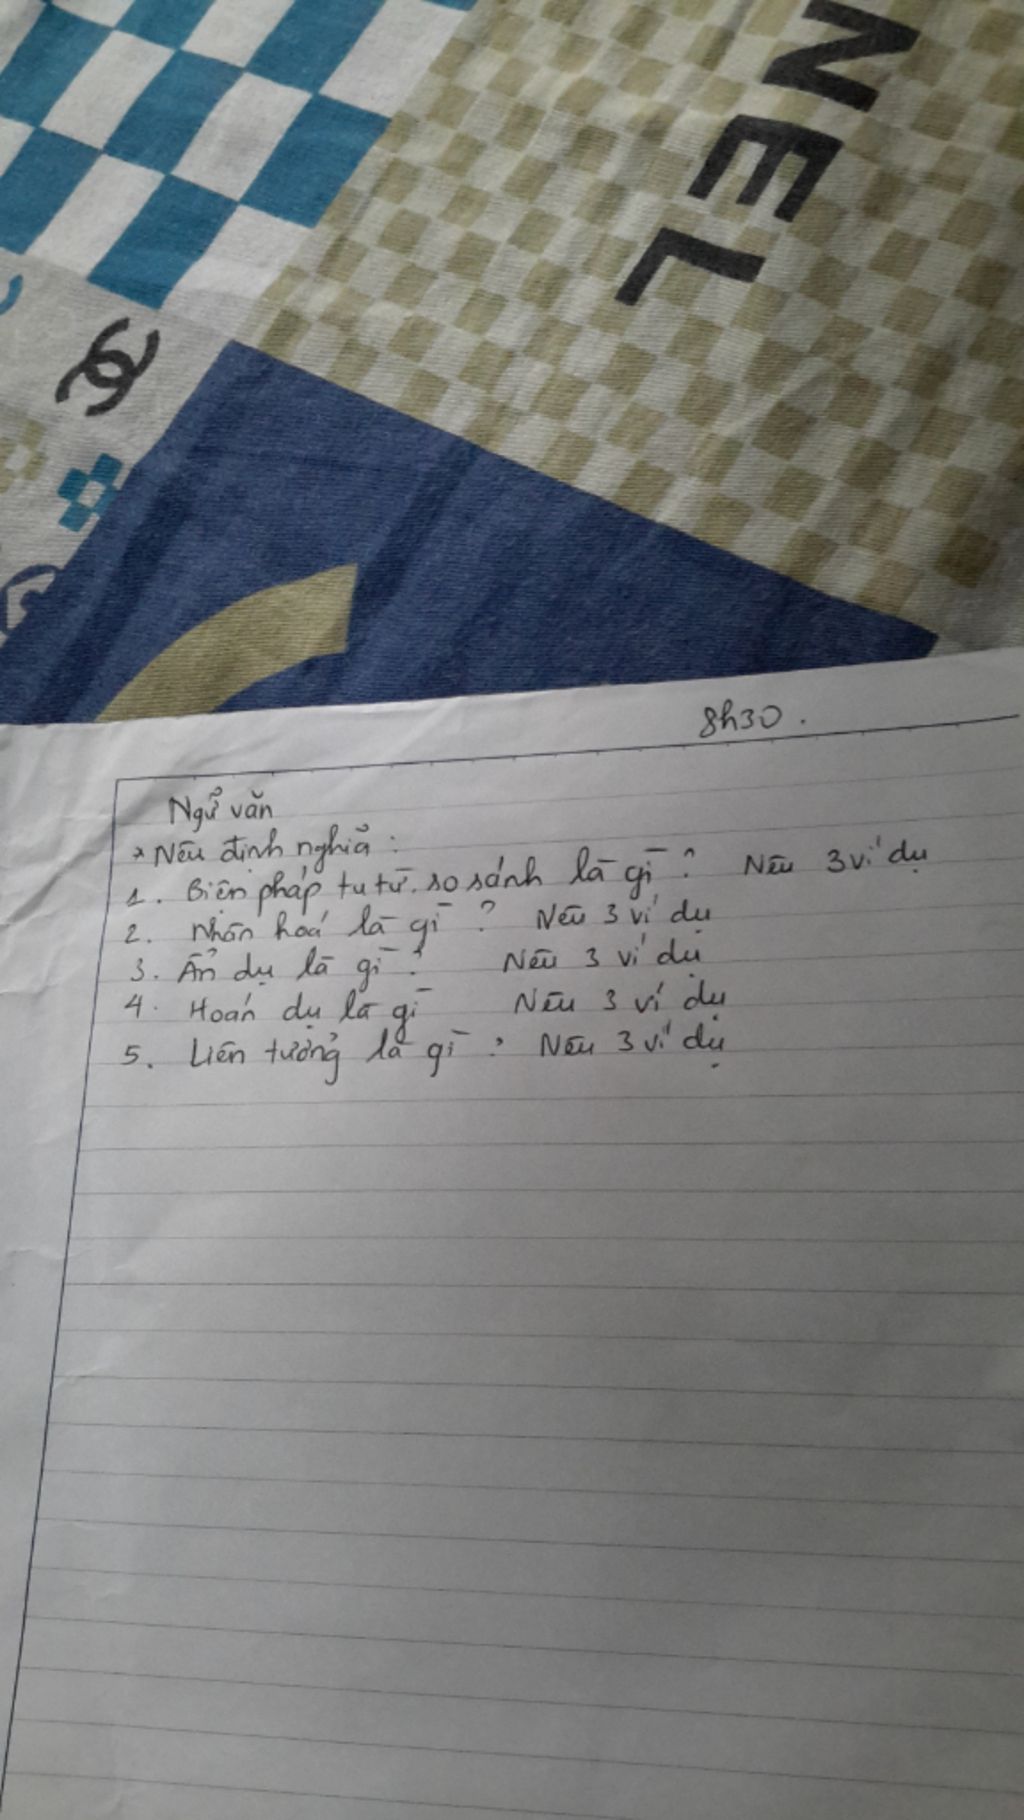 NEL
8h30.
Ngữ văn
* Nêu định nghĩa:
1. Biện pháp tu từ so sánh là gì? Nêu 3 ví dụ
2. Nhân hoá là gì? Nêu 3 ví dụ
3. Ẩn dụ là gì? Nêu 3 ví dụ
4. Hoán dụ là gì Nêu 3 ví dụ
5. Liên tưởng là gì? Nêu 3 ví dụ